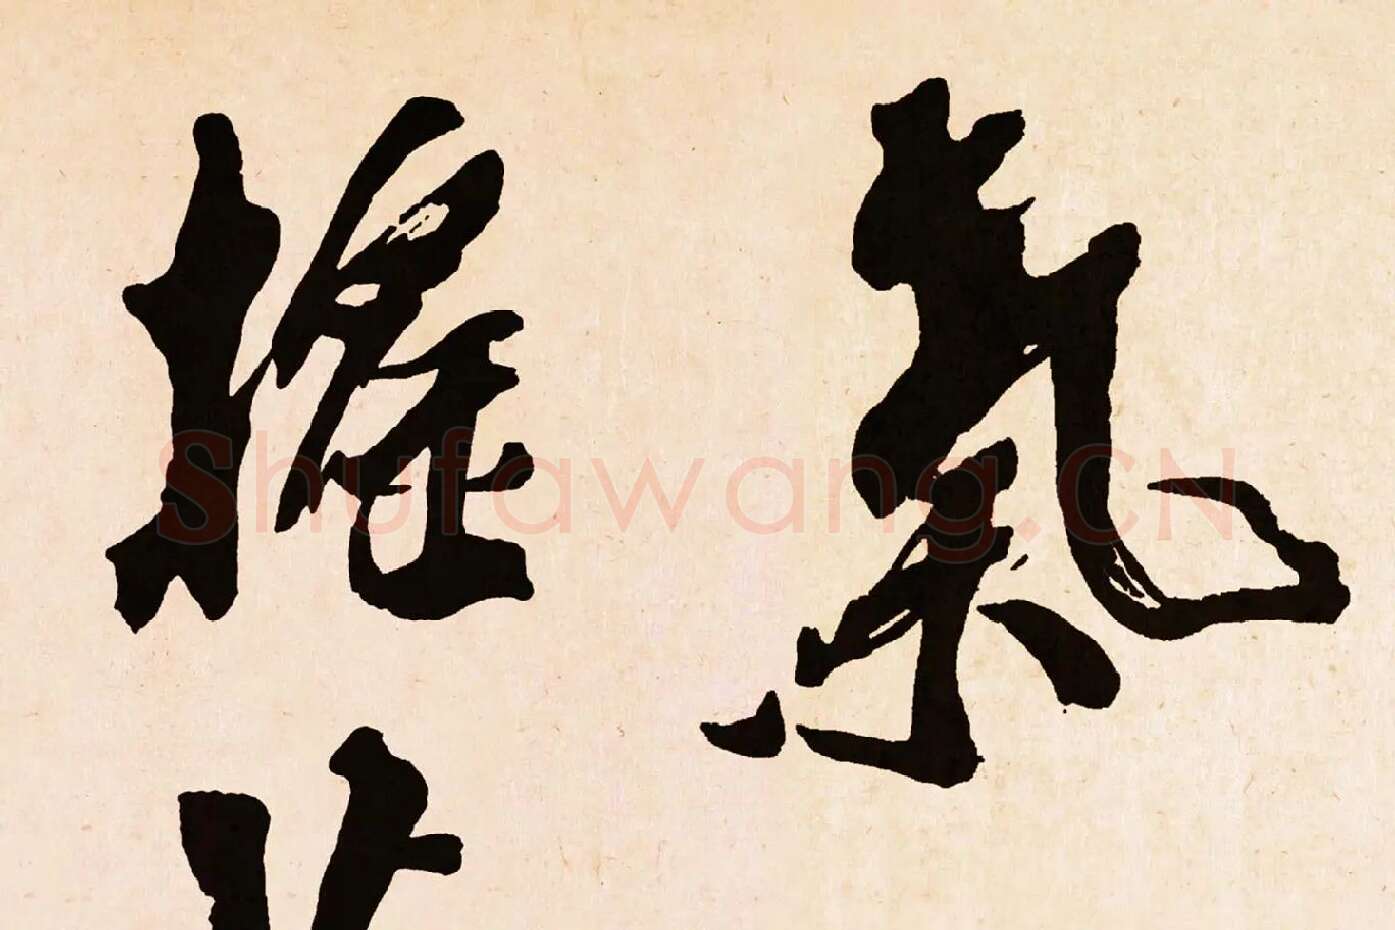 氣
搖
Shufawang.CN